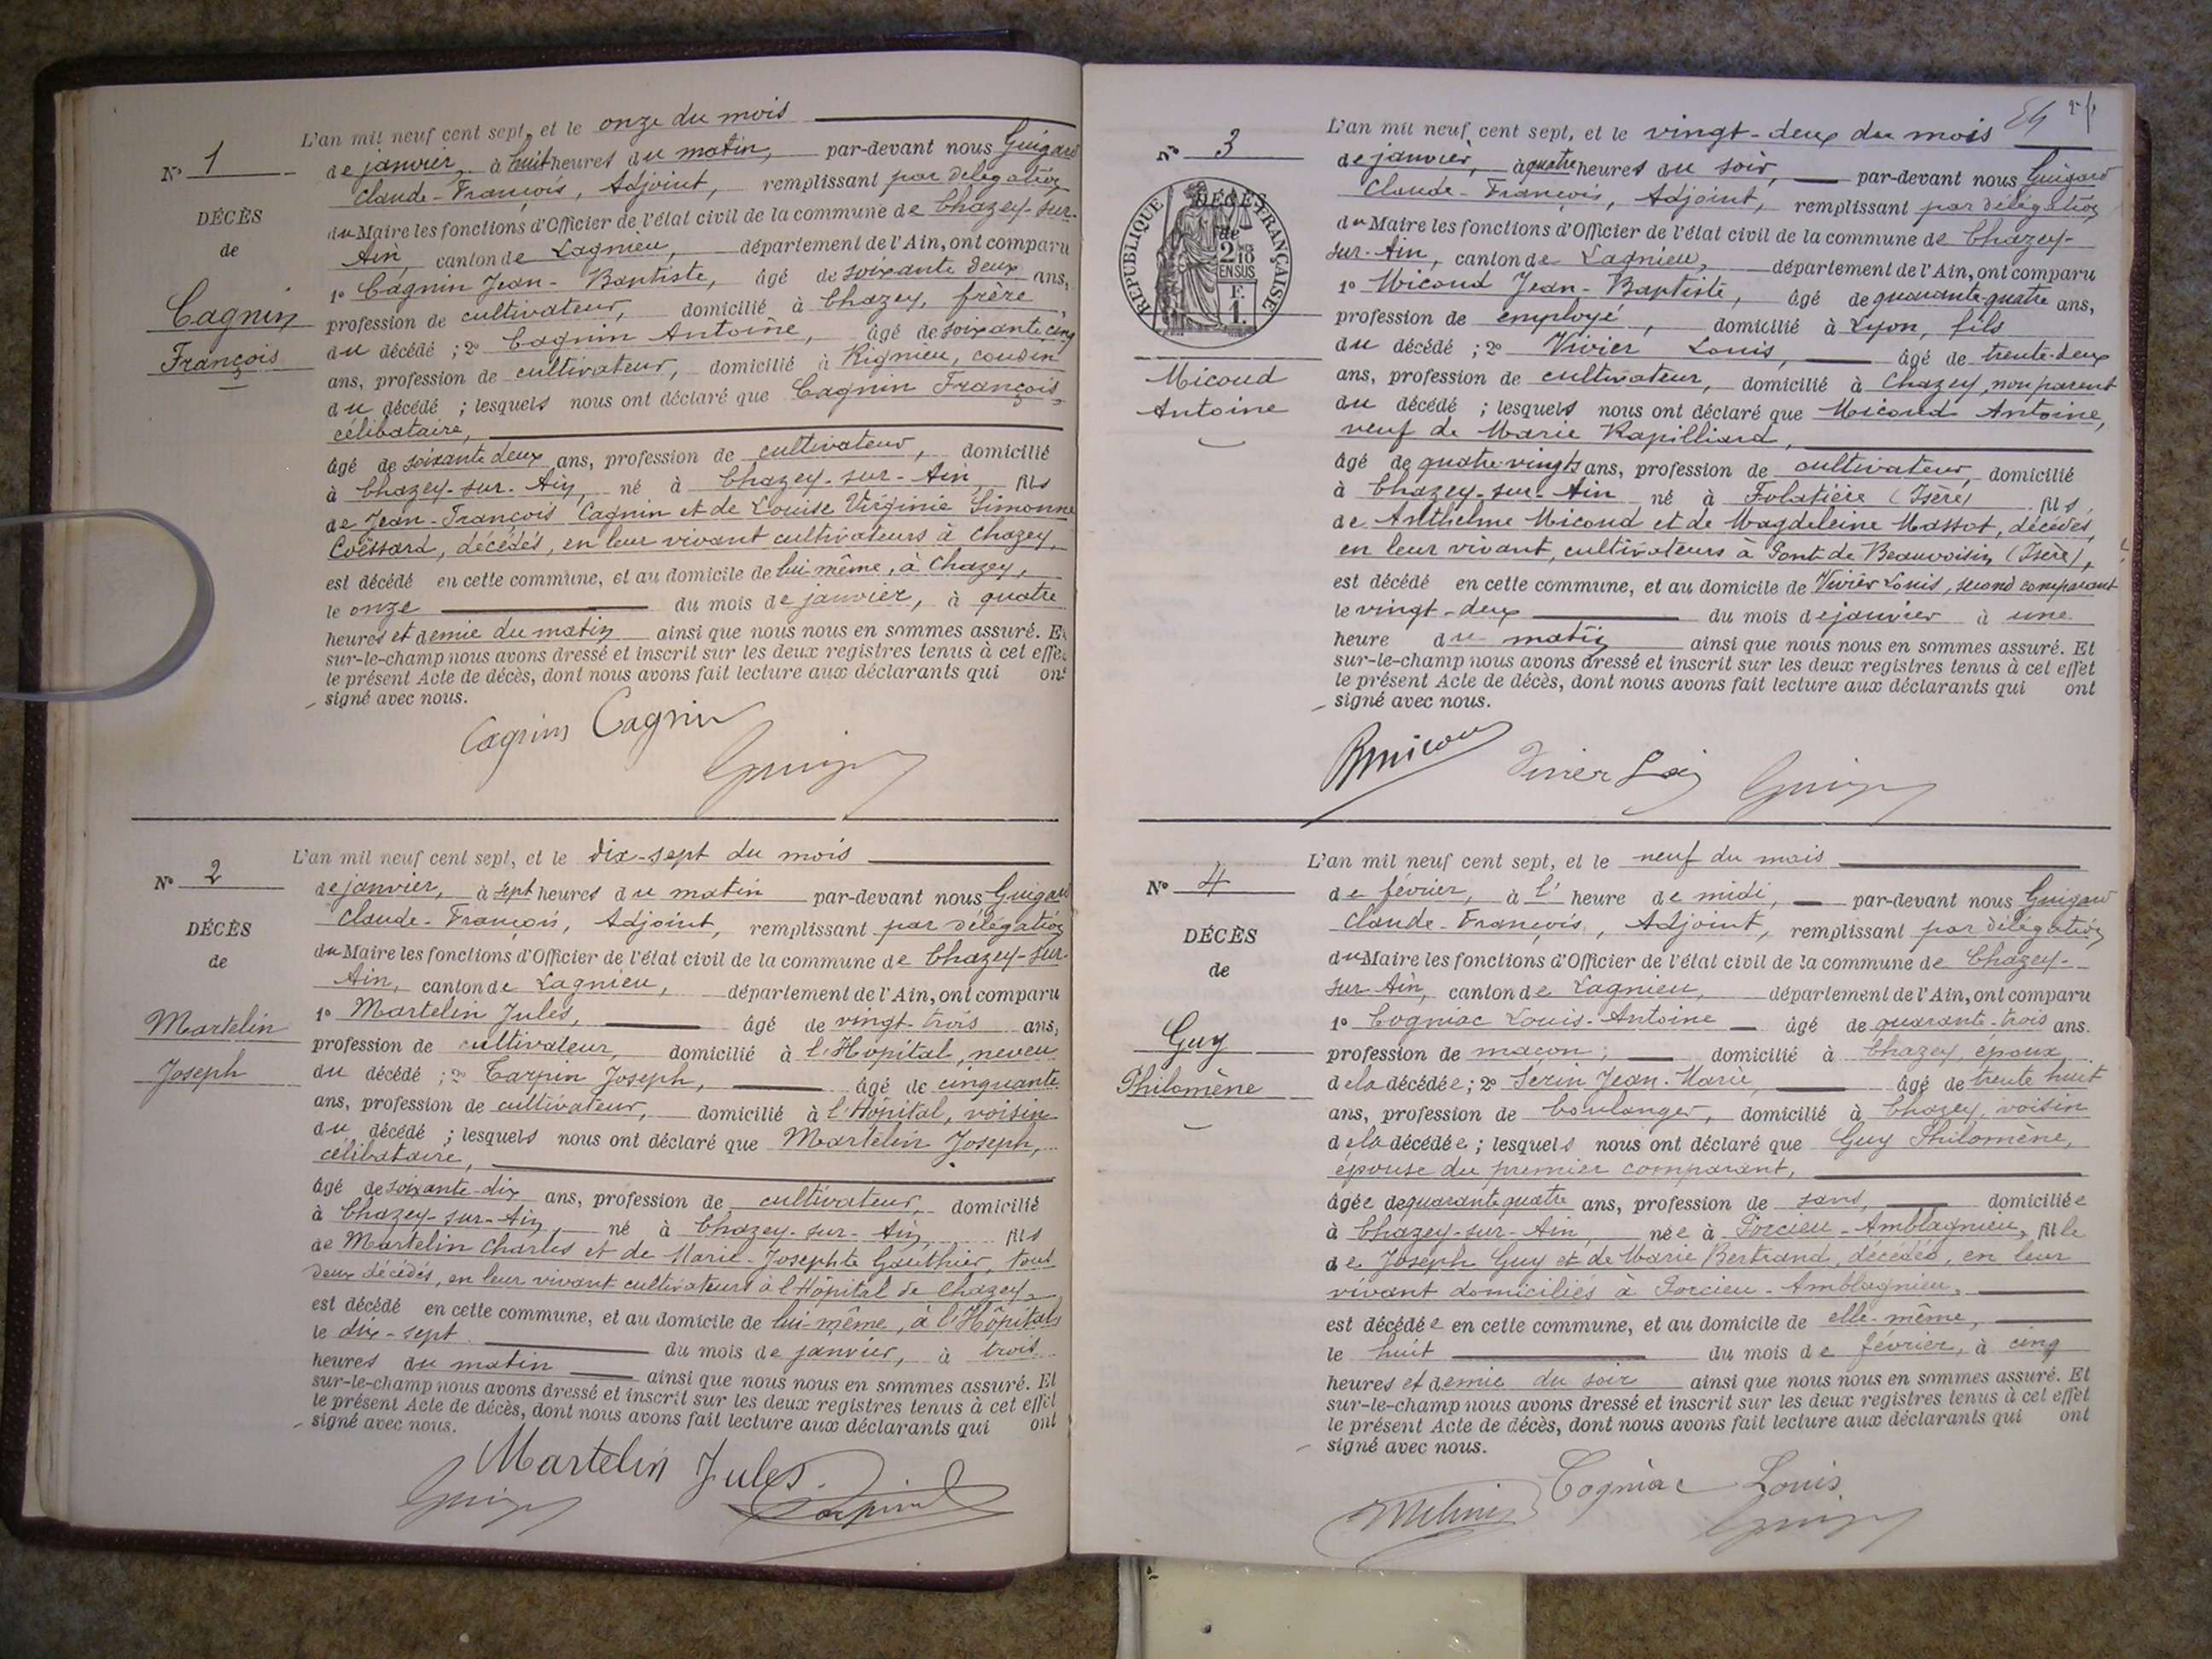 L'an mil neuf cent sept, et le onze du mois
N° 1
de janvier, à huit heures du matin, par-devant nous Guigard
Claude-François, Adjoint, remplissant par délégation
DÉCÈS
du Maire les fonctions d'Officier de l'état civil de la commune de Chazey-sur-
de
Ain, canton de Lagnieu, département de l'Ain, ont comparu
1° Cagnin Jean-Baptiste, âgé de soixante deux ans,
Cagnin
profession de cultivateur, domicilié à Chazey, frère
François
du décédé ; 2° Cagnin Antoine, âgé de soixante cinq
ans, profession de cultivateur, domicilié à Rignieu, cousin
du décédé ; lesquels nous ont déclaré que Cagnin François,
célibataire,
âgé de soixante deux ans, profession de cultivateur, domicilié
à Chazey-sur-Ain, né à Chazey-sur-Ain, fils
de Jean-François Cagnin et de Louise Virginie Simonne
Coëssard, décédés, en leur vivant cultivateurs à Chazey,
est décédé en cette commune, et au domicile de lui même, à Chazey,
le onze du mois de janvier, à quatre
heures et demie du matin ainsi que nous nous en sommes assuré. Et
sur-le-champ nous avons dressé et inscrit sur les deux registres tenus à cet effet
le présent Acte de décès, dont nous avons fait lecture aux déclarants qui ont
signé avec nous.
Cagnin Cagnin
L'an mil neuf cent sept, et le dix-sept du mois
N° 2
de janvier, à sept heures du matin par-devant nous Guigard
Claude-François, Adjoint, remplissant par délégation
DÉCÈS
du Maire les fonctions d'Officier de l'état civil de la commune de Chazey-sur-
de
Ain, canton de Lagnieu, département de l'Ain, ont comparu
1° Martelin Jules, âgé de vingt-trois ans,
Martelin
profession de cultivateur, domicilié à l'Hopital, neveu
Joseph
du décédé ; 2° Tarpin Joseph, âgé de cinquante
ans, profession de cultivateur, domicilié à l'Hôpital, voisin
du décédé ; lesquels nous ont déclaré que Martelin Joseph,
célibataire,
âgé de soixante-dix ans, profession de cultivateur, domicilié
à Chazey-sur-Ain, né à Chazey-sur-Ain, fils
de Martelin Charles et de Marie-Josephte Gauthier, tous
deux décédés, en leur vivant cultivateurs à l'Hôpital de Chazey,
est décédé en cette commune, et au domicile de lui-même, à l'Hôpital,
le dix-sept du mois de janvier, à trois
heures du matin ainsi que nous nous en sommes assuré. Et
sur-le-champ nous avons dressé et inscrit sur les deux registres tenus à cet effet
le présent Acte de décès, dont nous avons fait lecture aux déclarants qui ont
signé avec nous.
Martelin Jules.
L'an mil neuf cent sept, et le vingt-deux du mois
N° 3
de janvier, à quatre heures du soir, par-devant nous Guigard
Claude-François, Adjoint, remplissant par délégation
RÉPUBLIQUE FRANÇAISE
DÉCÈS
de
2/10
EN SUS
F.
1.
du Maire les fonctions d'Officier de l'état civil de la commune de Chazey-
sur-Ain, canton de Lagnieu, département de l'Ain, ont comparu
1° Micoud Jean-Baptiste, âgé de quarante-quatre ans,
profession de employé, domicilié à Lyon, fils
du décédé ; 2° Vivier Louis, âgé de trente-deux
Micoud
ans, profession de cultivateur, domicilié à Chazey, non parent
Antoine
du décédé ; lesquels nous ont déclaré que Micoud Antoine,
veuf de Marie Rapilliard,
âgé de quatre-vingts ans, profession de cultivateur, domicilié
à Chazey-sur-Ain né à Folatière (Isère) fils
de Anthelme Micoud et de Magdeleine Massot, décédés,
en leur vivant, cultivateurs à Pont-de Beauvoisin (Isère),
est décédé en cette commune, et au domicile de Vivier Louis, second comparant
le vingt-deux du mois de janvier à une
heure du matin ainsi que nous nous en sommes assuré. Et
sur-le-champ nous avons dressé et inscrit sur les deux registres tenus à cet effet
le présent Acte de décès, dont nous avons fait lecture aux déclarants qui ont
signé avec nous.
L'an mil neuf cent sept, et le neuf du mois
N° 4
de février, à l' heure de midi, par-devant nous Guigard
Claude-François, Adjoint, remplissant par délégation
DÉCÈS
du Maire les fonctions d'Officier de l'état civil de la commune de Chazey-
de
sur Ain, canton de Lagnieu, département de l'Ain, ont comparu
1° Cogniac Louis-Antoine âgé de quarante-trois ans.
Guy
profession de maçon, domicilié à Chazey, époux
Philomène
de la décédée ; 2° Serin Jean-Marie, âgé de trente huit
ans, profession de boulanger, domicilié à Chazey, voisin
de la décédée ; lesquels nous ont déclaré que Guy Philomène,
épouse du premier comparant,
âgée de quarante quatre ans, profession de sans, domiciliée
à Chazey-sur-Ain, née à Porcieu-Amblagnieu, fille
de Joseph Guy et de Marie Bertrand, décédés, en leur
vivant domiciliés à Porcieu-Amblagnieu,
est décédée en cette commune, et au domicile de elle-même,
le huit du mois de février, à cinq
heures et demie du soir ainsi que nous nous en sommes assuré. Et
sur-le-champ nous avons dressé et inscrit sur les deux registres tenus à cet effet
le présent Acte de décès, dont nous avons fait lecture aux déclarants qui ont
signé avec nous.
Cogniac Louis